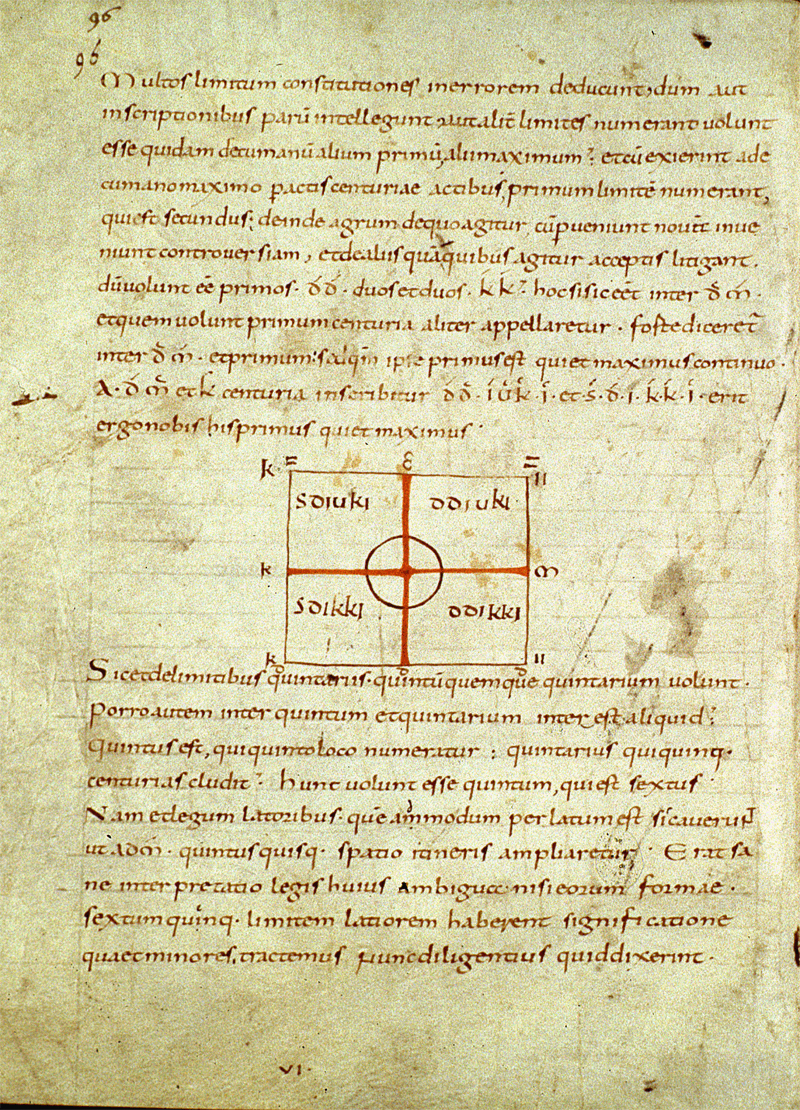 96
96
Multos limitum constitutiones in errorem deducunt, dum aut
inscriptionibus parū intellegunt aut alit̄ limites numerant volunt
esse quidam decumanū alium primū, alii maximum. et cū exierint a de
cumano maximo p actis centuriae actibus, primum limitē numerant,
qui est secundus; deinde agrum de quo agitur, cū pveniunt inve
niunt controversiam, et de aliis quā quibus agitur acceptis litigant.
dū volunt eē primos. d̄ d̄. duos et duos. k̄ k̄. hoc si sic eēt inter d̄ m̄.
et quem volunt primum centuria aliter appellaretur.
inter d̄ m̄. et primum: ipse primus est qui et maximus continuo.
A. d̄ m̄ et k centuria inscribitur d̄ d̄. ī ū k̄. ī. et. s̄. d̄. ī. k̄. k̄. ī. erit
ergo nobis his primus qui et maximus
k = =
II
SDIUKI DDIUKI
k M
SDIKKI DDIKKI
k II
Sic et de limitibus quintariis. quintū quemque quintarium volunt.
Porro autem inter quintum et quintarium interest aliquid.
Quintus est, qui quinto loco numeratur: quintarius qui quinq.
centurias cludit. hunc volunt esse quintum, qui est sextus
Nam et legum latoribus. quē ammodum per latum est sic caverunt
ut a dm̄. quintus quisq. spatio itineris ampliaretur. Erat sa
ne interpretatio legis huius ambigucc nisi eorum formae.
sextum quinq. limitem latiorem haberent significatione
quaet minores, tractemus nunc diligentius quid dixerint.
VI.